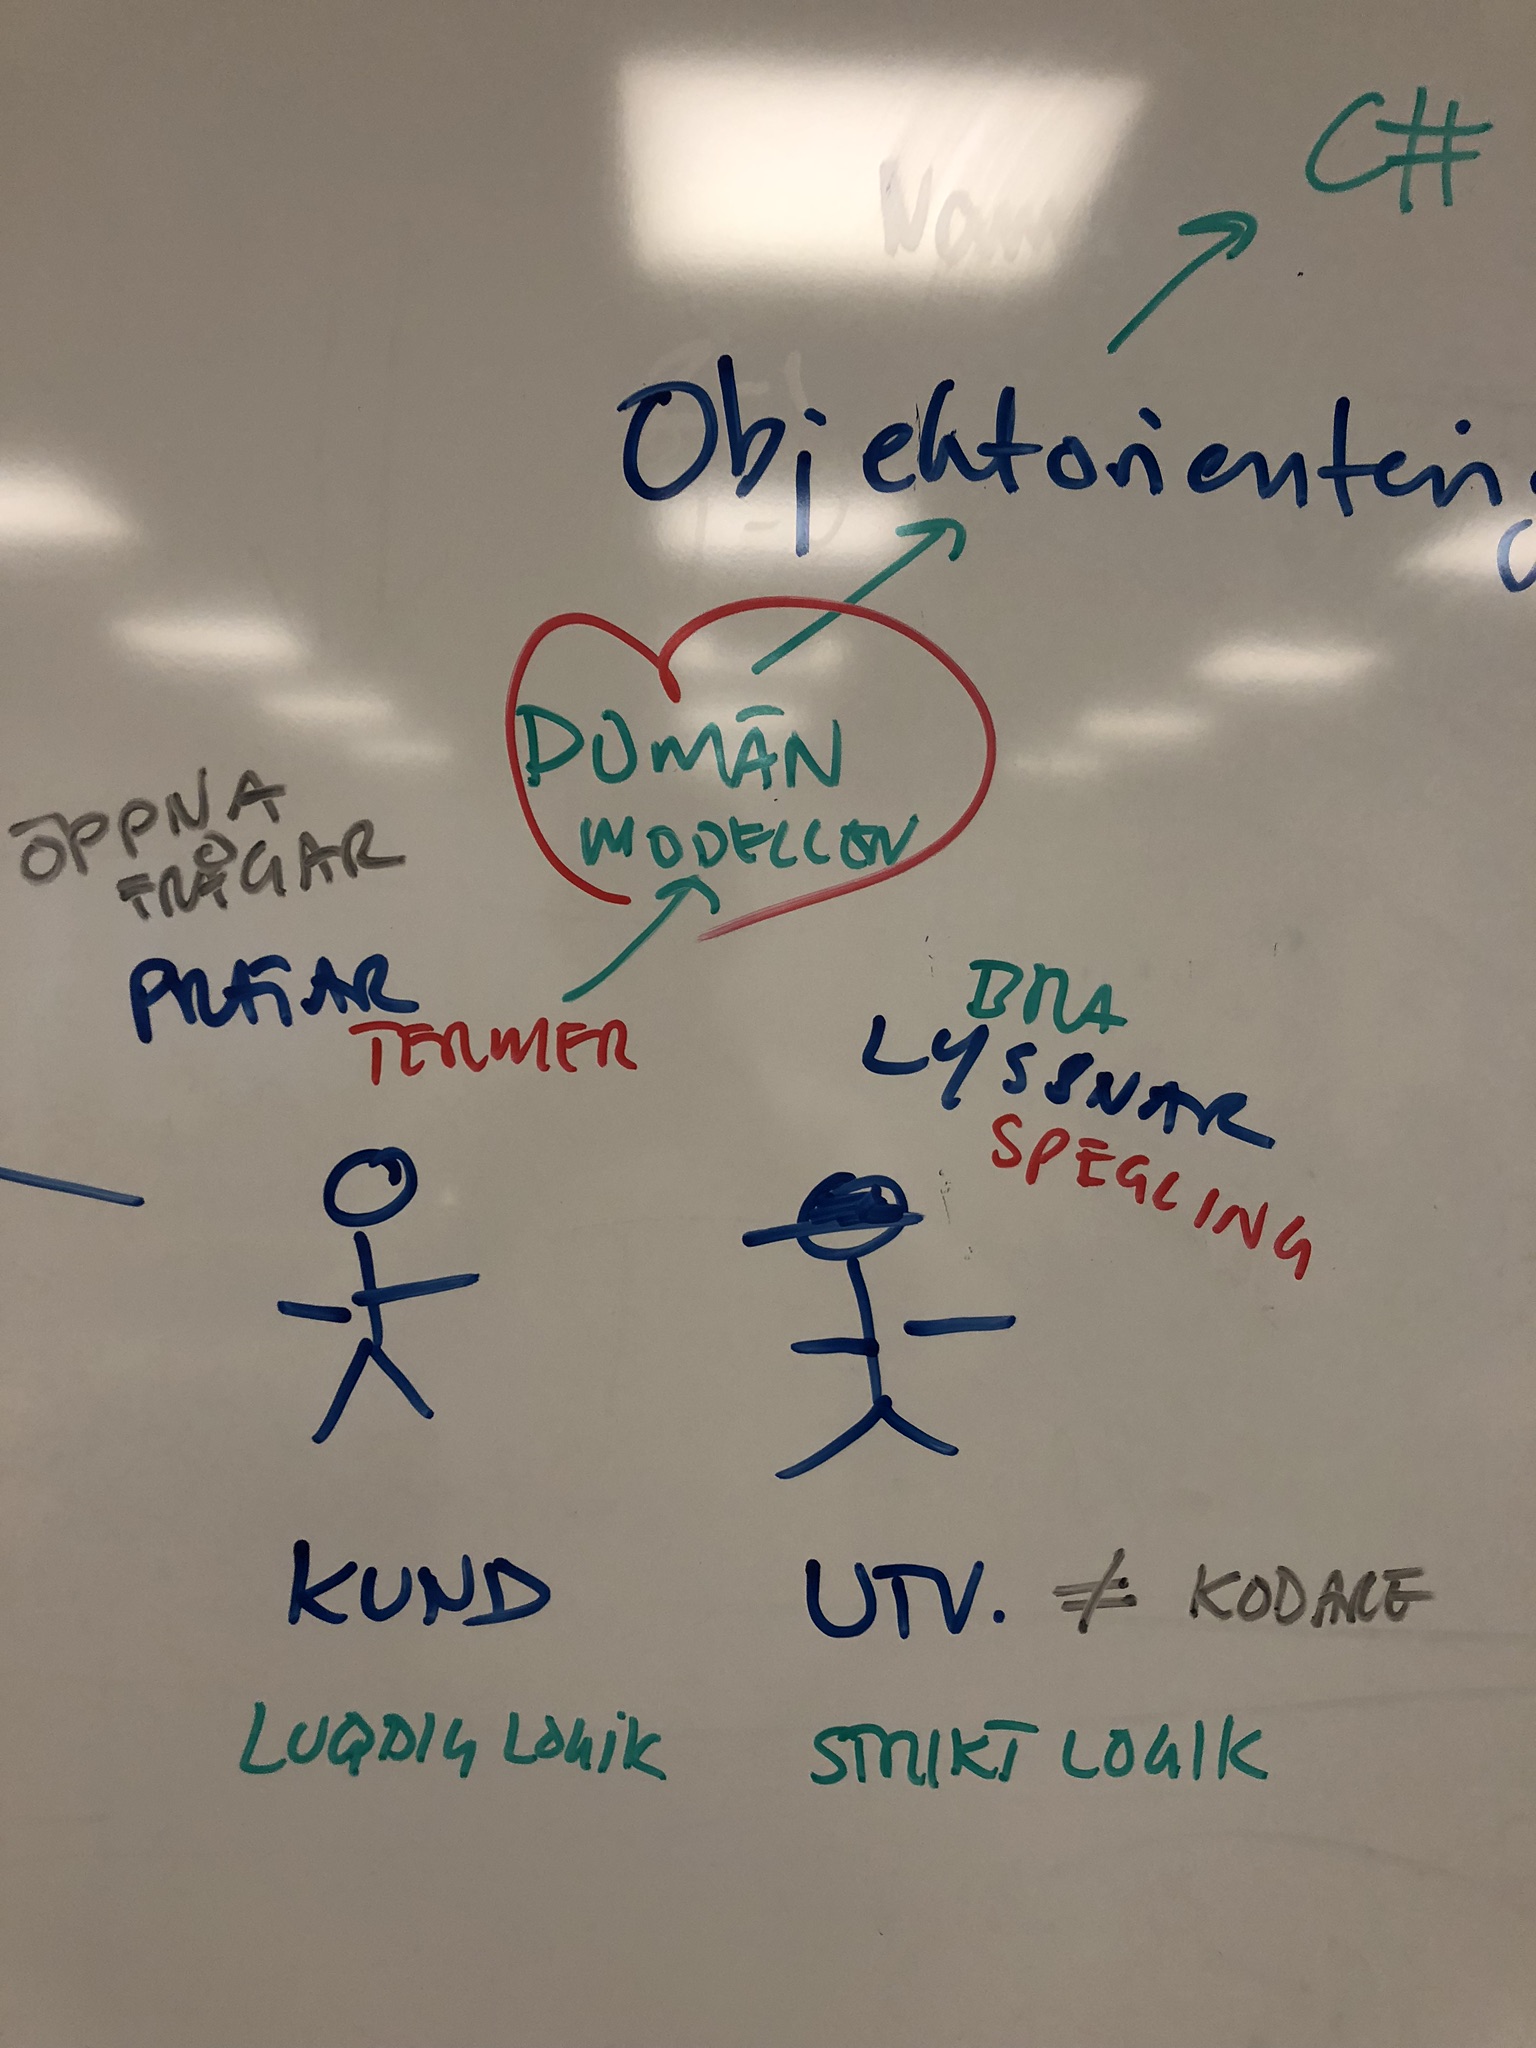 C#
Objektorientering
DOMÄN
MODELLEN
ÖPPNA
FRÅGAR
PRATAR
TERMER
BRA
LYSSNAR
SPEGLING
KUND
UTV. ≠ KODARE
LUDDIG LOGIK
STRIKT LOGIK